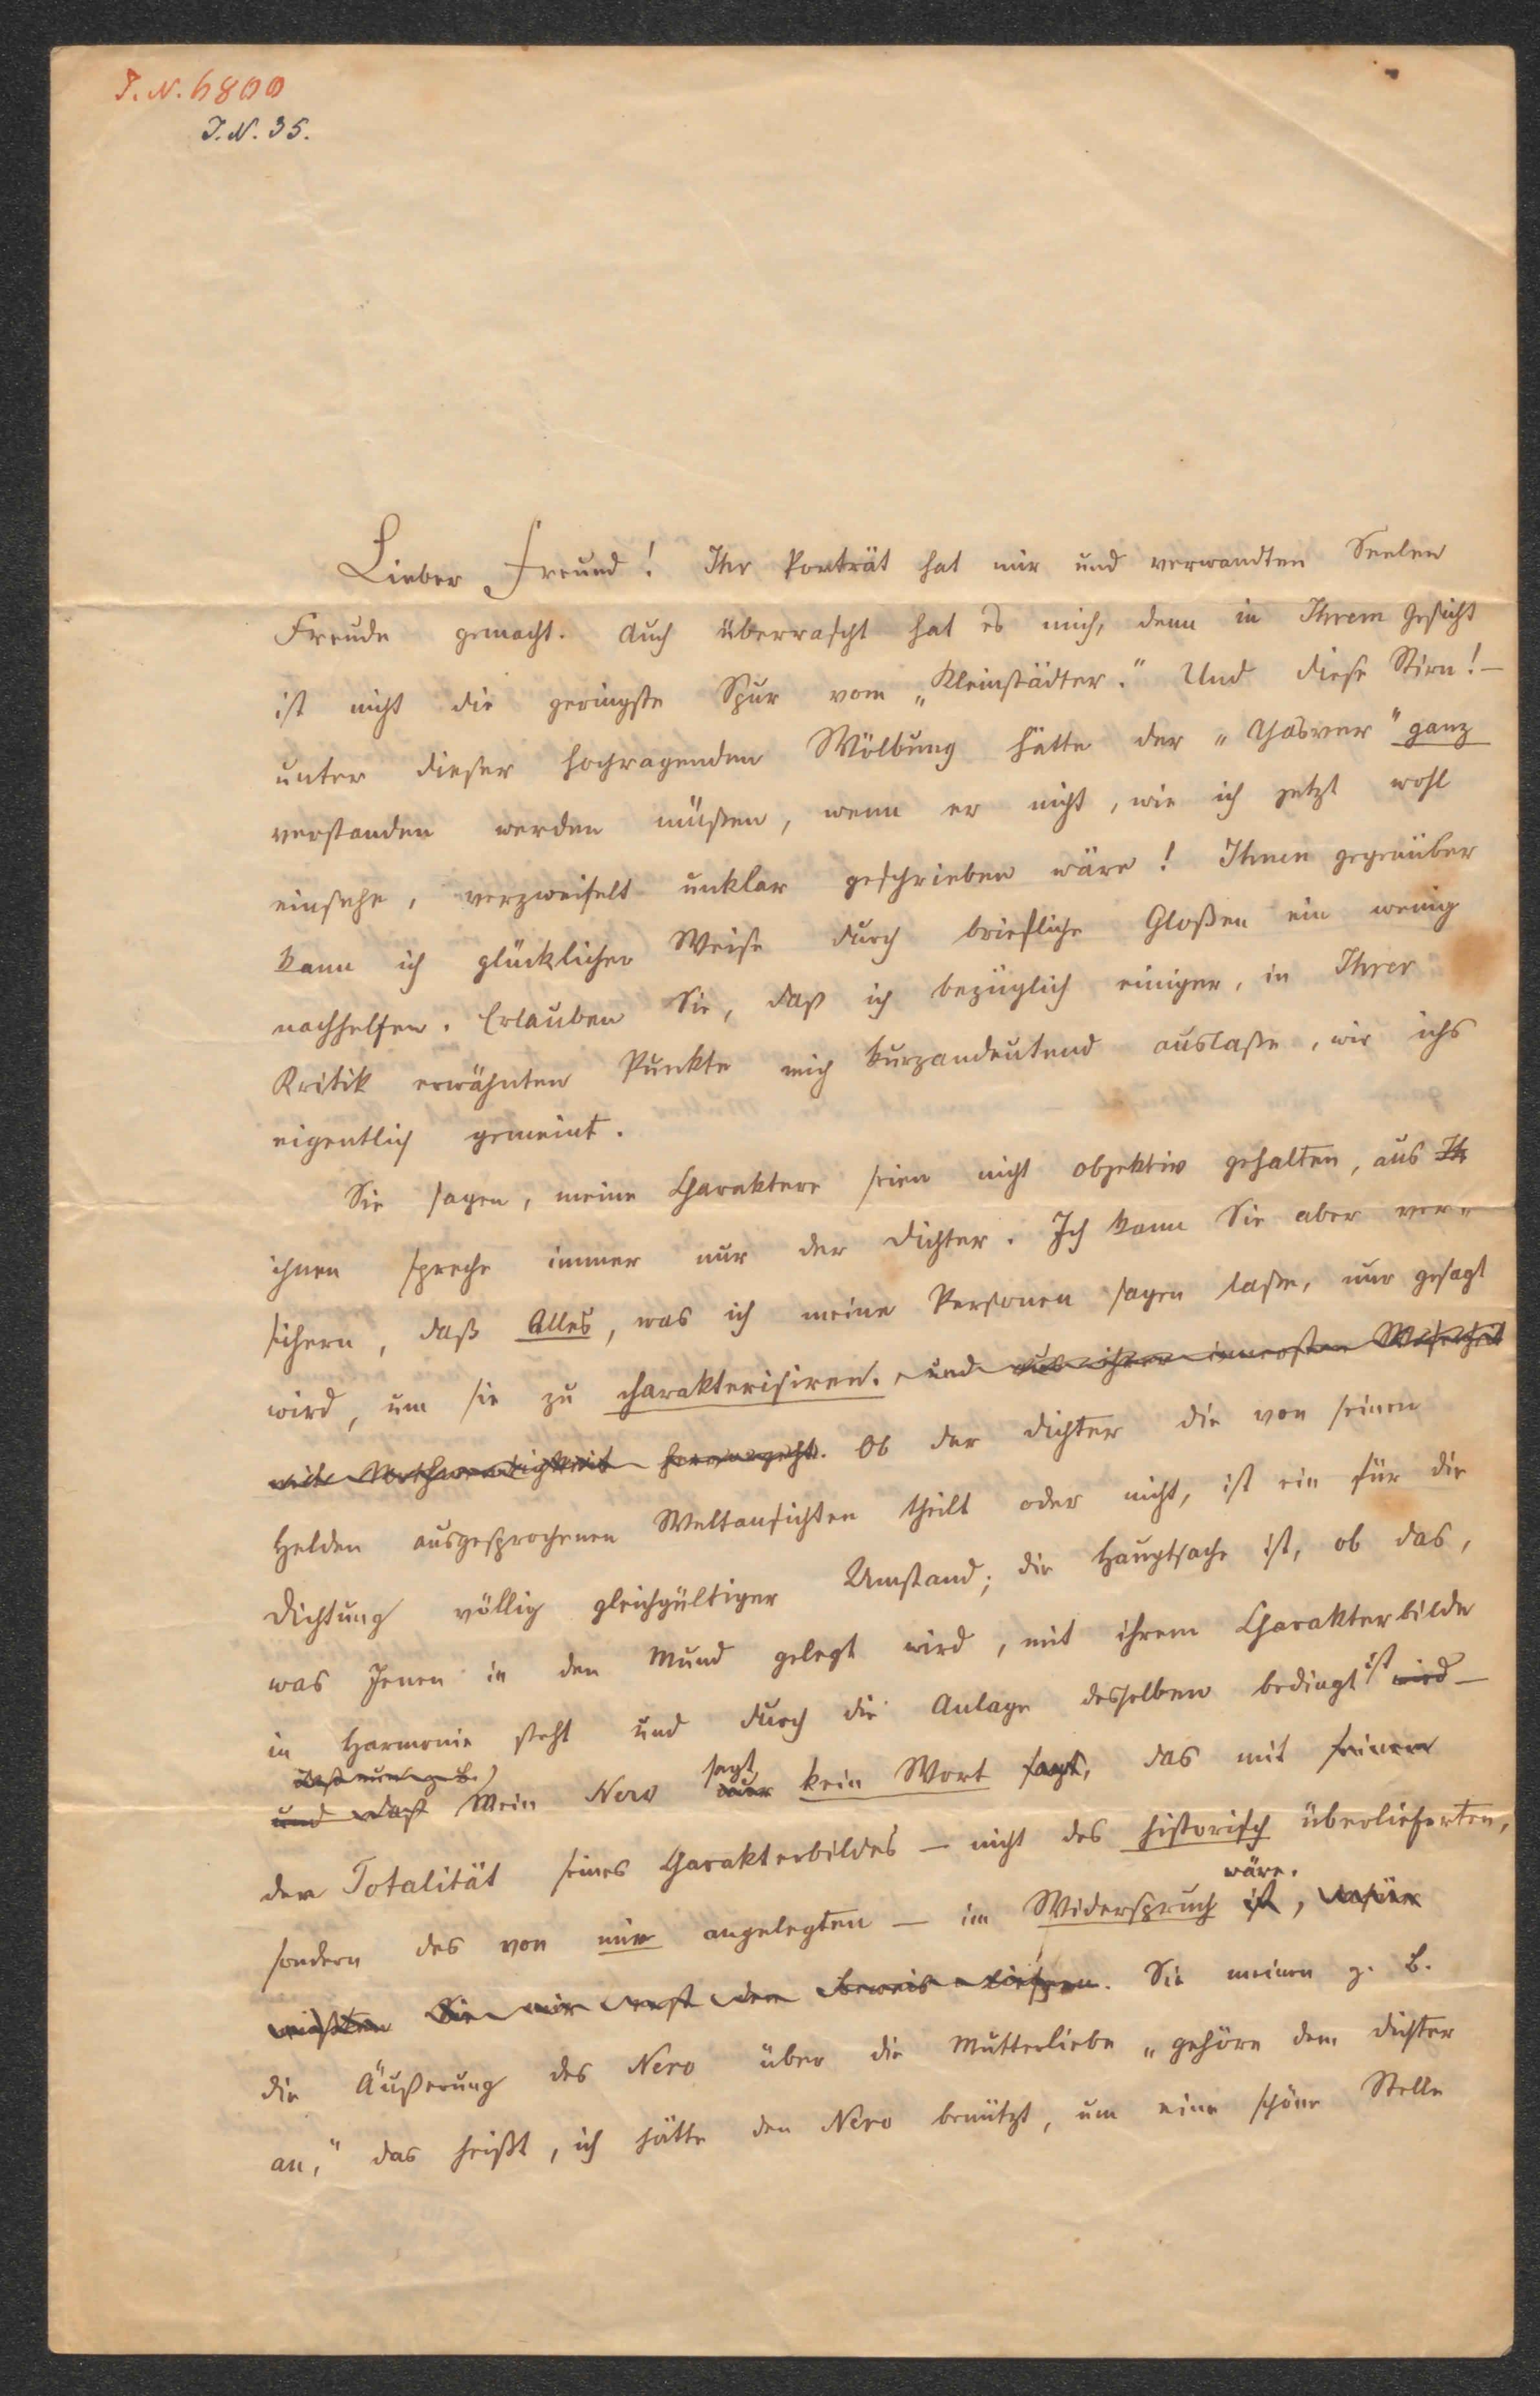 I. N. 6800
I. N. 35.
Lieber Freund! Ihr Porträt hat mir und verwandten Seelen
Freude gemacht. Auch überrascht hat es mich, denn in Ihrem Gesicht
ist nicht die geringste Spur vom „Kleinstädter." Und diese Stirn! —
unter dieser hochragenden Wölbung hätte der „Ahasver" ganz
verstanden werden müßen, wenn er nicht, wie ich jetzt wohl
einsehe, verzweifelt unklar geschrieben wäre! Ihnen gegenüber
kann ich glücklicher Weise durch briefliche Gloßen ein wenig
nachhelfen. Erlauben Sie, daß ich bezüglich einiger, in Ihrer
Kritik erwähnten Punkte mich kurzandeutend auslaße, wie ichs
eigentlich gemeint.
Sie sagen, meine Charaktere seien nicht objektiv gehalten, aus Ih
ihnen spreche immer nur der Dichter. Ich kann Sie aber ver-
sichern, daß Alles, was ich meine Personen sagen laße, nur gesagt
wird, um sie zu charakterisiren. und aus ihrer innersten
Nothwendigkeit hervorgeht. Ob der Dichter die von seinen
Helden ausgesprochenen Weltansichten theilt oder nicht, ist ein für die
Dichtung völlig gleichgültiger Umstand; die Hauptsache ist, ob das,
was Jenen in den Mund gelegt wird, mit ihrem Charakterbilde
in Harmonie steht und durch die Anlage desselben bedingt ist wird —
und daß Mein Nero sagt nur kein Wort sagt, das mit seinem
der Totalität seines Charakterbildes — nicht des historisch überlieferten,
sondern des von mir angelegten — im Widerspruch wäre. ist, dafür
müßten Sie mir erst den Beweis liefern. Sie meinen z. B.
die Äußerung des Nero über die Mutterliebe „gehöre dem Dichter
an," das heißt, ich hätte den Nero benützt, um eine schöne Stelle